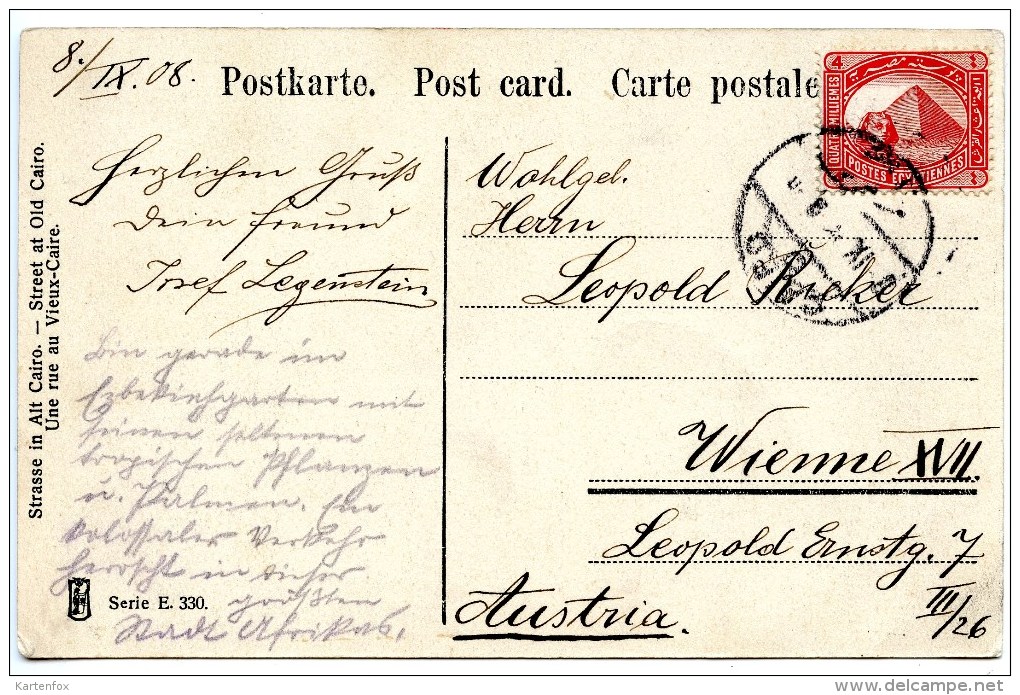 8./IX.08.
Postkarte. Post card. Carte postale
4
QUATRE MILLIEMES
بوسته مصريه
POSTES EGYPTIENNES
Strasse in Alt Cairo. — Street at Old Cairo.
Une rue au Vieux-Caire.
Herzlichen Gruß
Dein Freund
Josef Legenstein
Bin gerade im
Ezbekiehgarten mit
seinen seltenen
tropischen Pflanzen
u. Palmen. Ein
kolossaler Verkehr
herrscht in dieser
größten
Stadt Afrikas.
Serie E. 330.
Wohlgeb.
Herrn
Leopold Ricker
Wienne XVII.
Leopold Ernstg. 7
III/26
Austria.
Kartenfox
delcampe.net